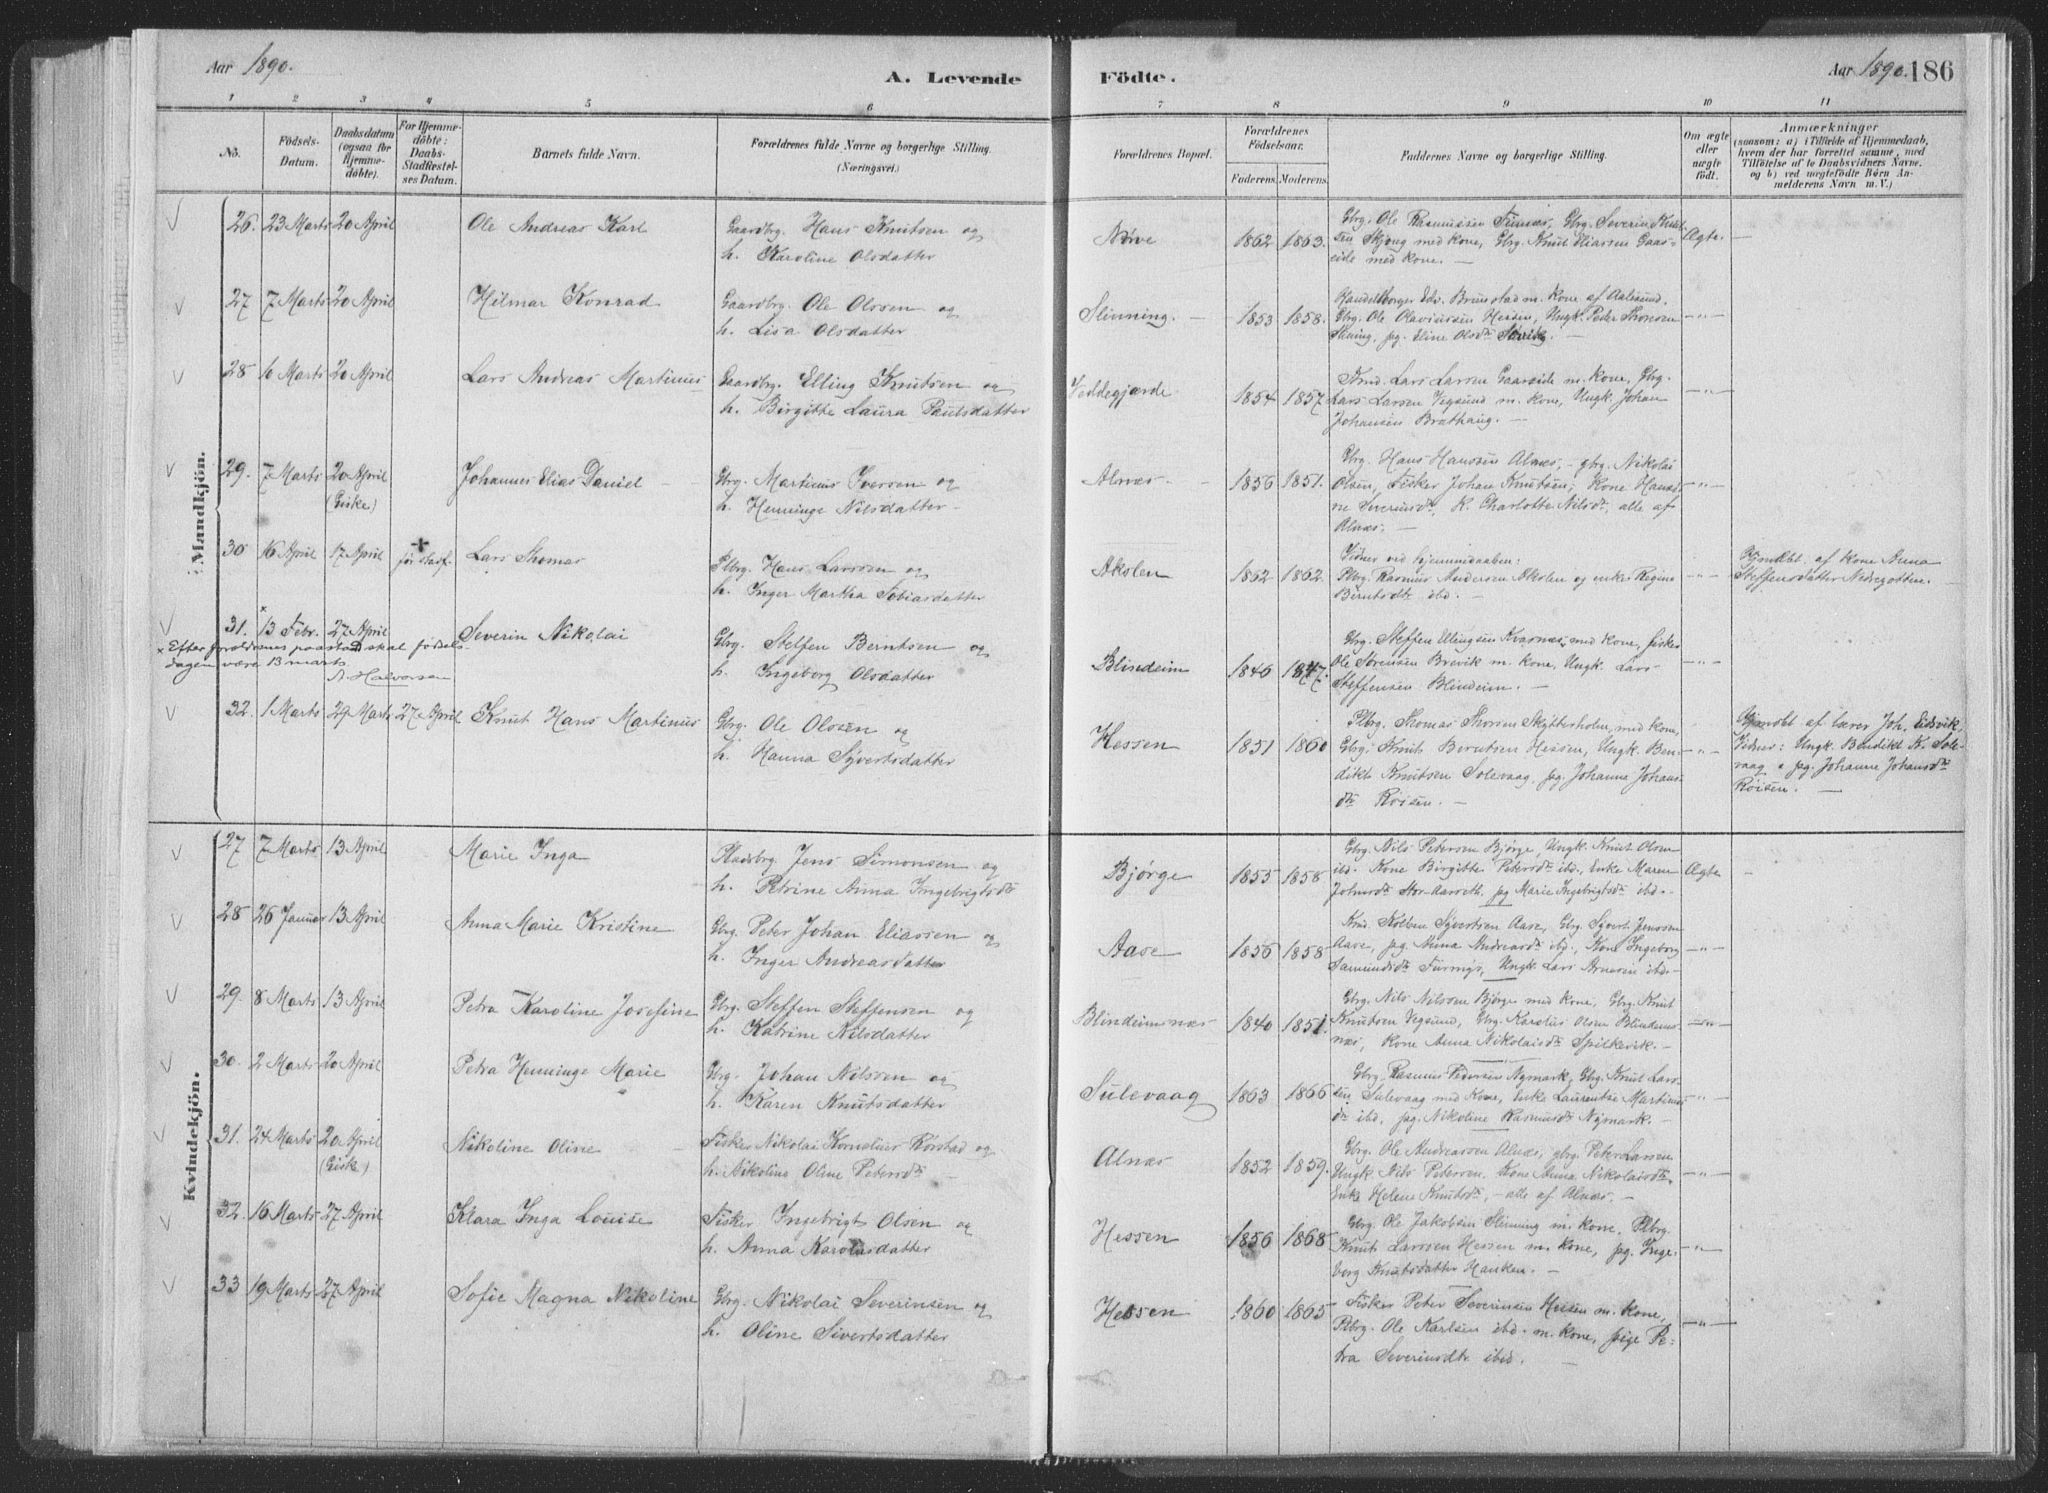 Aar 1890.
A. Levende
Födte.
Aar 1890. 186
1 2 3 4 5 6 7 8 9 10 11
No.
Födsels-
Datum.
Daabsdatum
(ogsaa for
Hjemme-
döbte).
For Hjemme-
döbte:
Daabs-
Stadfæstel-
ses Datum.
Barnets fulde Navn.
Forældrenes fulde Navne og borgerlige Stilling.
(Næringsvei.)
Forældrenes Bopæl.
Forældrenes
Födselsaar.
Faderens. Moderens.
Faddernes Navne og borgerlige Stilling.
Om ægte
eller
uægte
födt.
Anmærkninger
(saasom: a) i Tilfælde af Hjemmedaab,
hvem der har forrettet samme, med
Tilföielse af to Daabsvidners Navne,
og b) ved uægtefödte Börn An-
melderens Navn m. V.)
Mandkjön.
26. 23 Marts 20 April Ole Andreas Karl
Gaardbrg. Hans Knutsen og
h. Karoline Olsdatter
Nørve 1862 1863.
Gbrg. Ole Rasmussen Gbrg. Severin
Skjong med kone, Gbrg. Knut Eliassen Gaas-
eide med kone. —
Ægte. —
27 7 Marts 20 April Hilmar Konrad
Gaardbrg. Ole Olssen og
h. Lisa Olsdatter
Slinning. — 1853 1858.
Handelsborger Edv. Brunstad m. kone af Aalesund.
Gbrg. Ole Olaviussen Hessen, Ungk. Peder Thoresen
pig. Eline Olsdtr —
—"—
28 6 Marts 20 April Lars Andreas Martinus
Gaardbrg. Elling Knutsen og
h. Birgitte Laura Paulsdatter
Veddegjærde 1854 1857
Lars Larsen Gaaseide m. kone, Gbrg.
Lars Larsen Vegsund m. kone, Ungk. Johan
Johansen Brathaug. —
—"—
29. 7 Marts 20 April
(Giske)
Johannes Elias Daniel —
Gbrg. Martinus Iversen og
h. Henninge Nilsdatter —
Alnæs. 1856 1851.
Gbrg. Hans Hanssen Alnæs, – gbrg. Nikolai
Olsen, Fisker Johan Knutsen, Kone Hansi-
ne Severinsdtr, K. Charlotte Nilsdtr, alle af
Alnæs. —
—"—
30 16 April 17 April † før stadf. Lars Thomas
Plbrg. Hans Larssen og
h. Inger Martha Tobiasdatter
Akslen 1862 1862.
Vidner ved hjemmedaaben:
Plbrg. Rasmus Andersen Akslen og enke Regine
Berntsdtr ibd. —
—"—
Hjemdøbt af kone Anna
Steffensdatter Nedregotten. —
31. × 13 Febr. 27 April Severin Nikolai
× Efter forældrenes paastand skal fødsels-
dagen være 13 marts
A. Halvorsen
Gbrg. Steffen Berntsen og
h. Ingeborg Olsdatter
Blindeim 1840 1847.
Gbrg. Steffen Ellingsen Kvasnæs med kone, fisker
Ole Sørensen Brevik m. kone, Ungk. Lars
Steffensen Blindeim. —
—"—
32. 1 Marts 29 Marts 27 April Knut Hans Martinus
Gbrg. Ole Olsen og
h. Hanna Syvertsdatter
Hessen 1851 1860
Plbrg. Thomas Thorsen Skytterholm med kone,
Gbrg. Knut Berntsen Hessen, Ungk. Ben-
dikt Knutsen Solevaag, pig. Johanna Johans-
dtr Røisen. —
—"—
Hjemdbt af lærer Joh. Eidsvik,
Vidner: Ungk. Bendikt K. Sole-
vaag & pig. Johanne Johansdtr
Røisen. —
Kvindekjön.
27 7 Marts 13 April Marie Inga
Pladsbrg. Jens Simonsen og
h. Petrine Anna Ingebrigtsdtr
Bjørge 1855 1858
Gbrg. Nils Petersen Bjørge, Ungk. Knut Olsen
ibd. Kone Birgitte Petersdtr ibd., Enke Maren
Johnsdtr Stor-Aarseth, pig Marie Ingebrigtsdtr ibd. –
Ægte —
28 26 Januar 13 April Anna Marie Kristine
Gbrg. Peter Johan Eliassen og
h. Inger Andreasdatter
Aase 1856 1858
Kolben Syvertsen Aase, Gbrg. Syvert Jenssen
Aase, pig. Anna Andreasdtr ibd., Kone Ingeborg
Samundsdtr Ungk. Lars Arnesen ibd. –
—"—
29. 8 Marts 13 April Petra Karoline Josefine
Gbrg. Steffen Steffensen og
h. Katrine Nilsdatter
Blindeimsnæs 1840 1851.
Gbrg. Nils Nilssen Bjørge med kone, Gbrg. Knut
Knutsen Vegsund, Gbrg. Karolus Olsen Blindeims-
næs, kone Anna Nikolaisdtr Spilkevik. —
—"—
30. 2 Marts 20 April Petra Henninge Marie
Gbrg. Johan Nilssen og
h. Karen Knutsdatter
Sulevaag 1863 1866
Gbrg. Rasmus Pedersen Nymark, Gbrg. Knut Lars-
sen Sulevaag med Kone, Enke Laurentse Martinus
dtr ibd, pig. Nikoline Rasmusdtr Nymark. —
—"—
31. 24 Marts 20 April
(Giske)
Nikoline Oline
Fisker Nikolai Kornelius Rørstad og
h. Nikoline Oline Petersdtr —
Alnæs 1852 1859.
Gbrg. Ole Andreassen Alnæs, gbrg. Peter Larsen
Ungk. Nils Petersen, Kone Anna Nikolaisdtr,
Enke Helene Knutsdtr, – alle af Alnæs. —
—"—
32. 16 Marts 27 April Klara Inga Louise
Fisker Ingebrigt Olsen og
h. Anna Karolusdatter
Hessen 1856 1868
Gbrg. Ole Jakobsen Slinning m. kone, Plbrg.
Knut Larssen Hessen m. kone, pig. Inge-
borg Knutsdatter Hanken. —
—"—
33 19 Marts 27 April Sofie Magna Nikoline
Gbrg. Nikolai Severinsen og
h. Oline Sivertsdatter
Hessen 1860 1865
Fisker Peter Severinsen Hessen m. kone,
Plbrg. Ole Karlsen ibd. m. kone, pige Pe-
tra Severinsdtr ibid. —
—"—